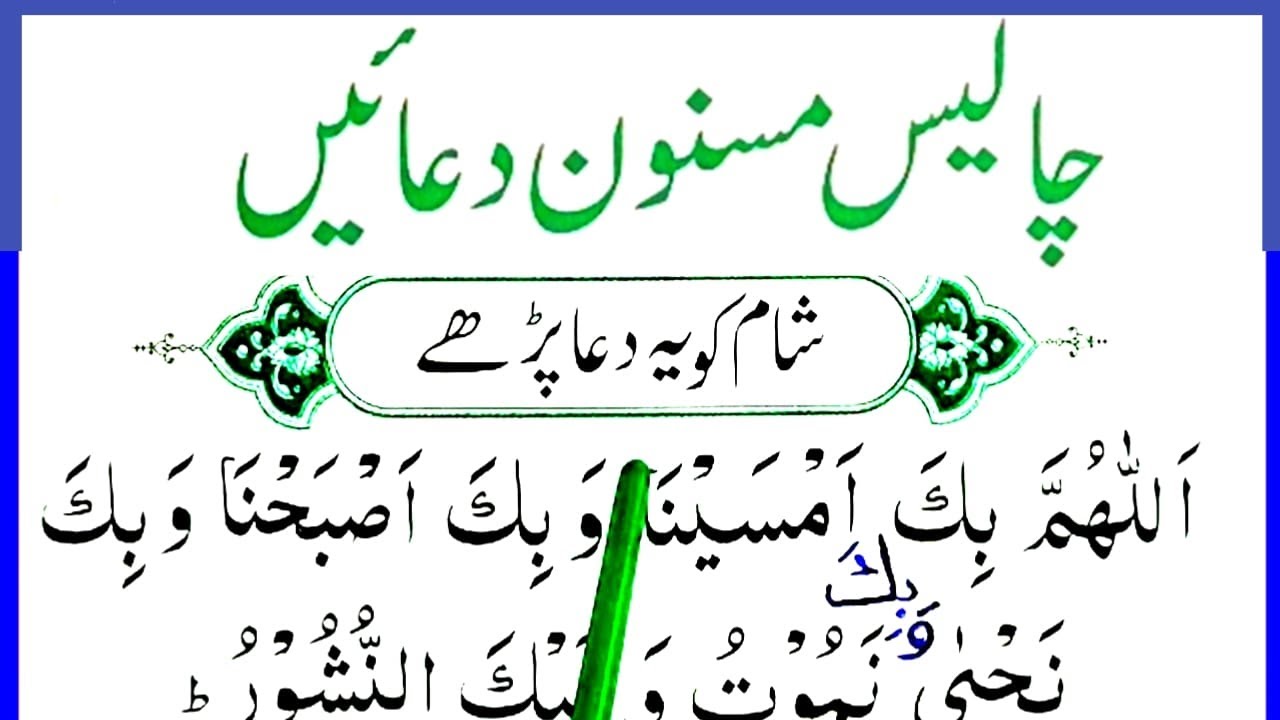 چالیس مسنون دعائیں
شام کو یہ دعا پڑھے
اَللّٰهُمَّ بِكَ اَمْسَيْنَا وَبِكَ اَصْبَحْنَا وَبِكَ
وَبِكَ
نَحْيٰى نَمُوْتُ النُّشُوْرُ ط